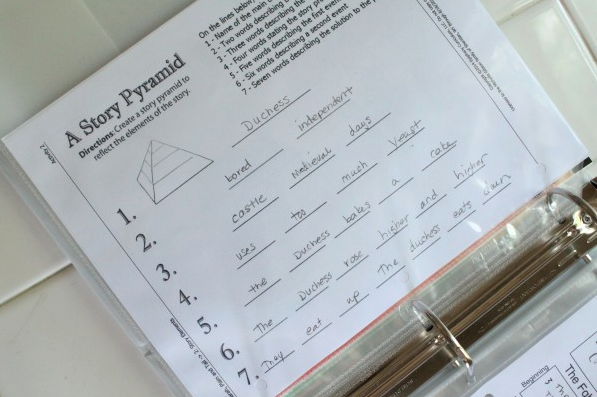 Activity 2
A Story Pyramid
Directions: Create a story pyramid to
reflect the elements of the story.
On the lines below
1 - Name of the main
2 - Two words describing
3 - Three words describing the
4 - Four words stating the story
5 - Five words describing the first event
6 - Six words describing a second event
7 - Seven words describing the solution to the
1. Duchess
2. bored independent
3. castle Medieval days
4. uses too much yeast
5. the Duchess bakes a cake
6. The Duchess rose higher and higher
7. They eat up The duchess eats
Beginning
The